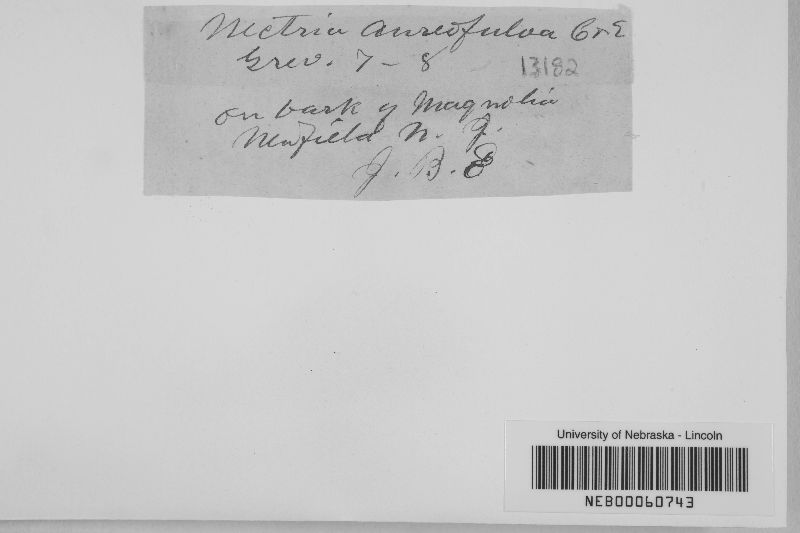 Nectria aureofulva C & E
Grev. 7 - 8 13182
on bark of Magnolia
Newfield N. J.
J. B. E
University of Nebraska - Lincoln
NEB00060743